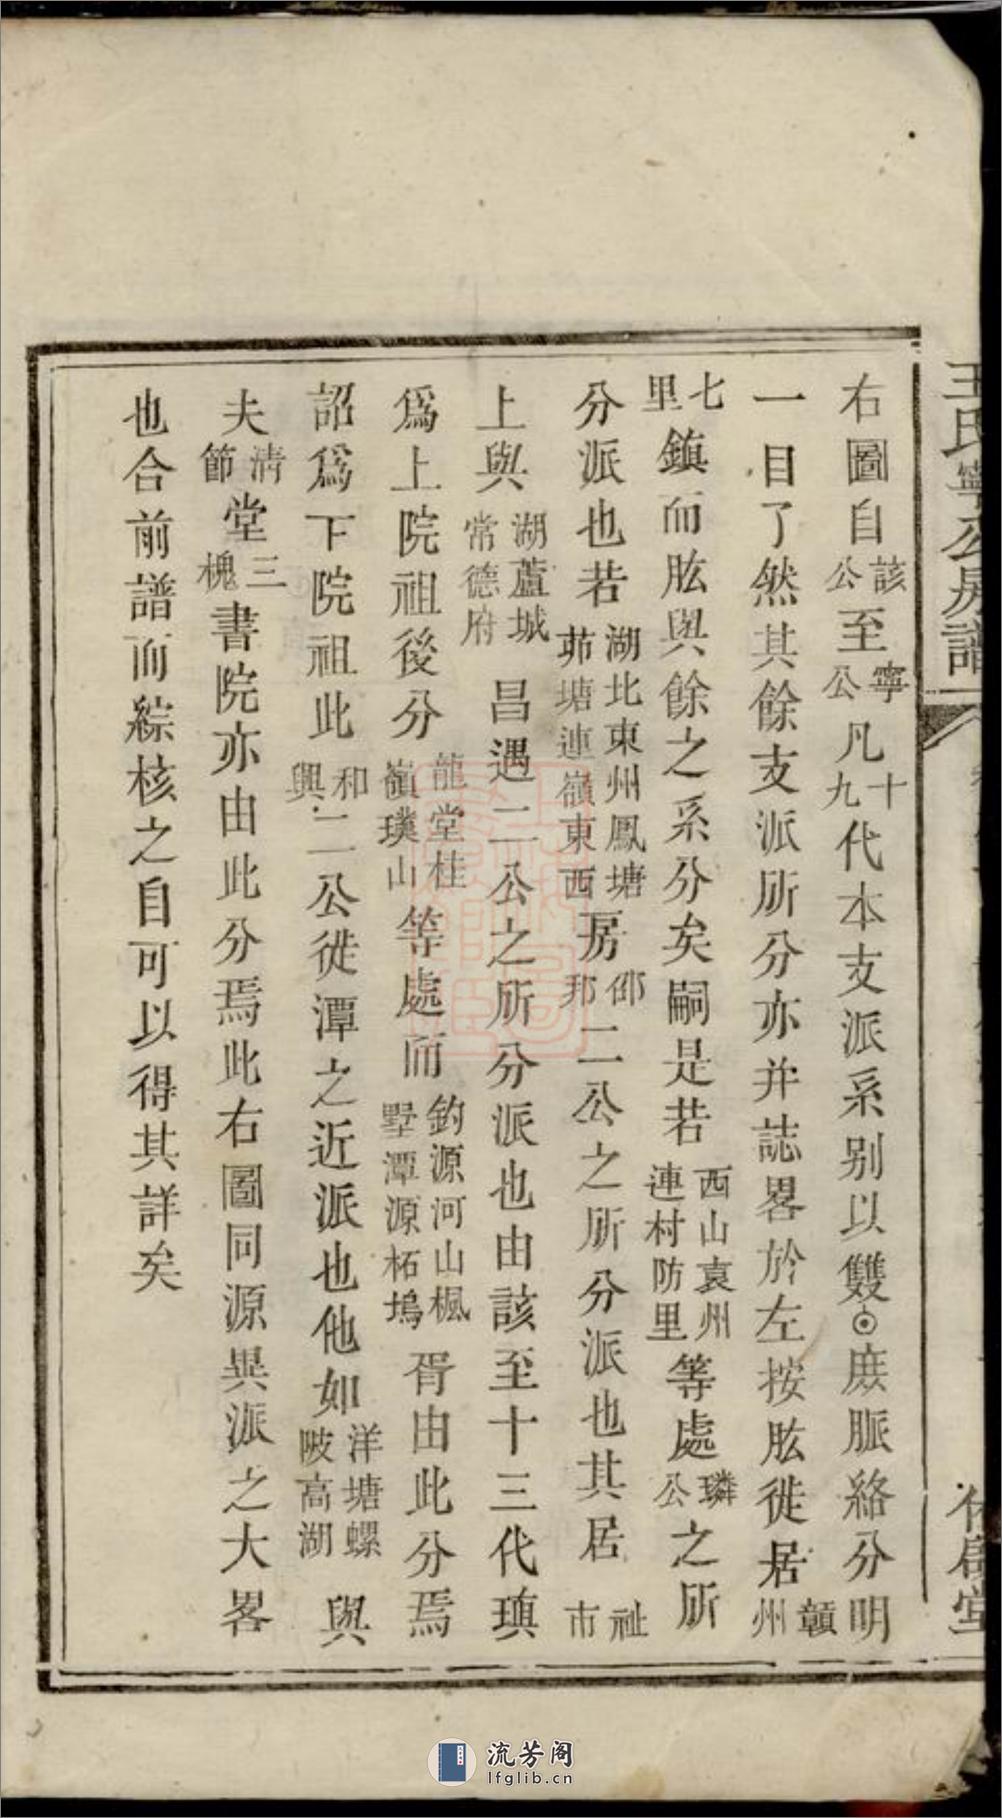 王氏寧公房譜
右圖自該公至寧公凡十九代本支派系别以雙⊙庶脈絡分明
一目了然其餘支派所分亦并誌畧於左按肱徙居贛州
七里鎮而肱與餘之系分矣嗣是若西山袁州連村防里等處璘公之所
分派也若湖北東州鳳塘茆塘連嶺東西房邵邦二公之所分派也其居祉市
上與湖蘆城常德府昌遇二公之所分派也由該至十三代瑱
爲上院祖後分龍堂桂嶺璞山等處而釣源河山楓墅潭源柘塢胥由此分焉
詔爲下院祖此和興二公徙潭之近派也他如洋塘螺陂高湖與
夫清節堂三槐書院亦由此分焉此右圖同源異派之大畧
也合前譜而綜核之自可以得其詳矣
啟堂
流芳阁
lfglib.cn